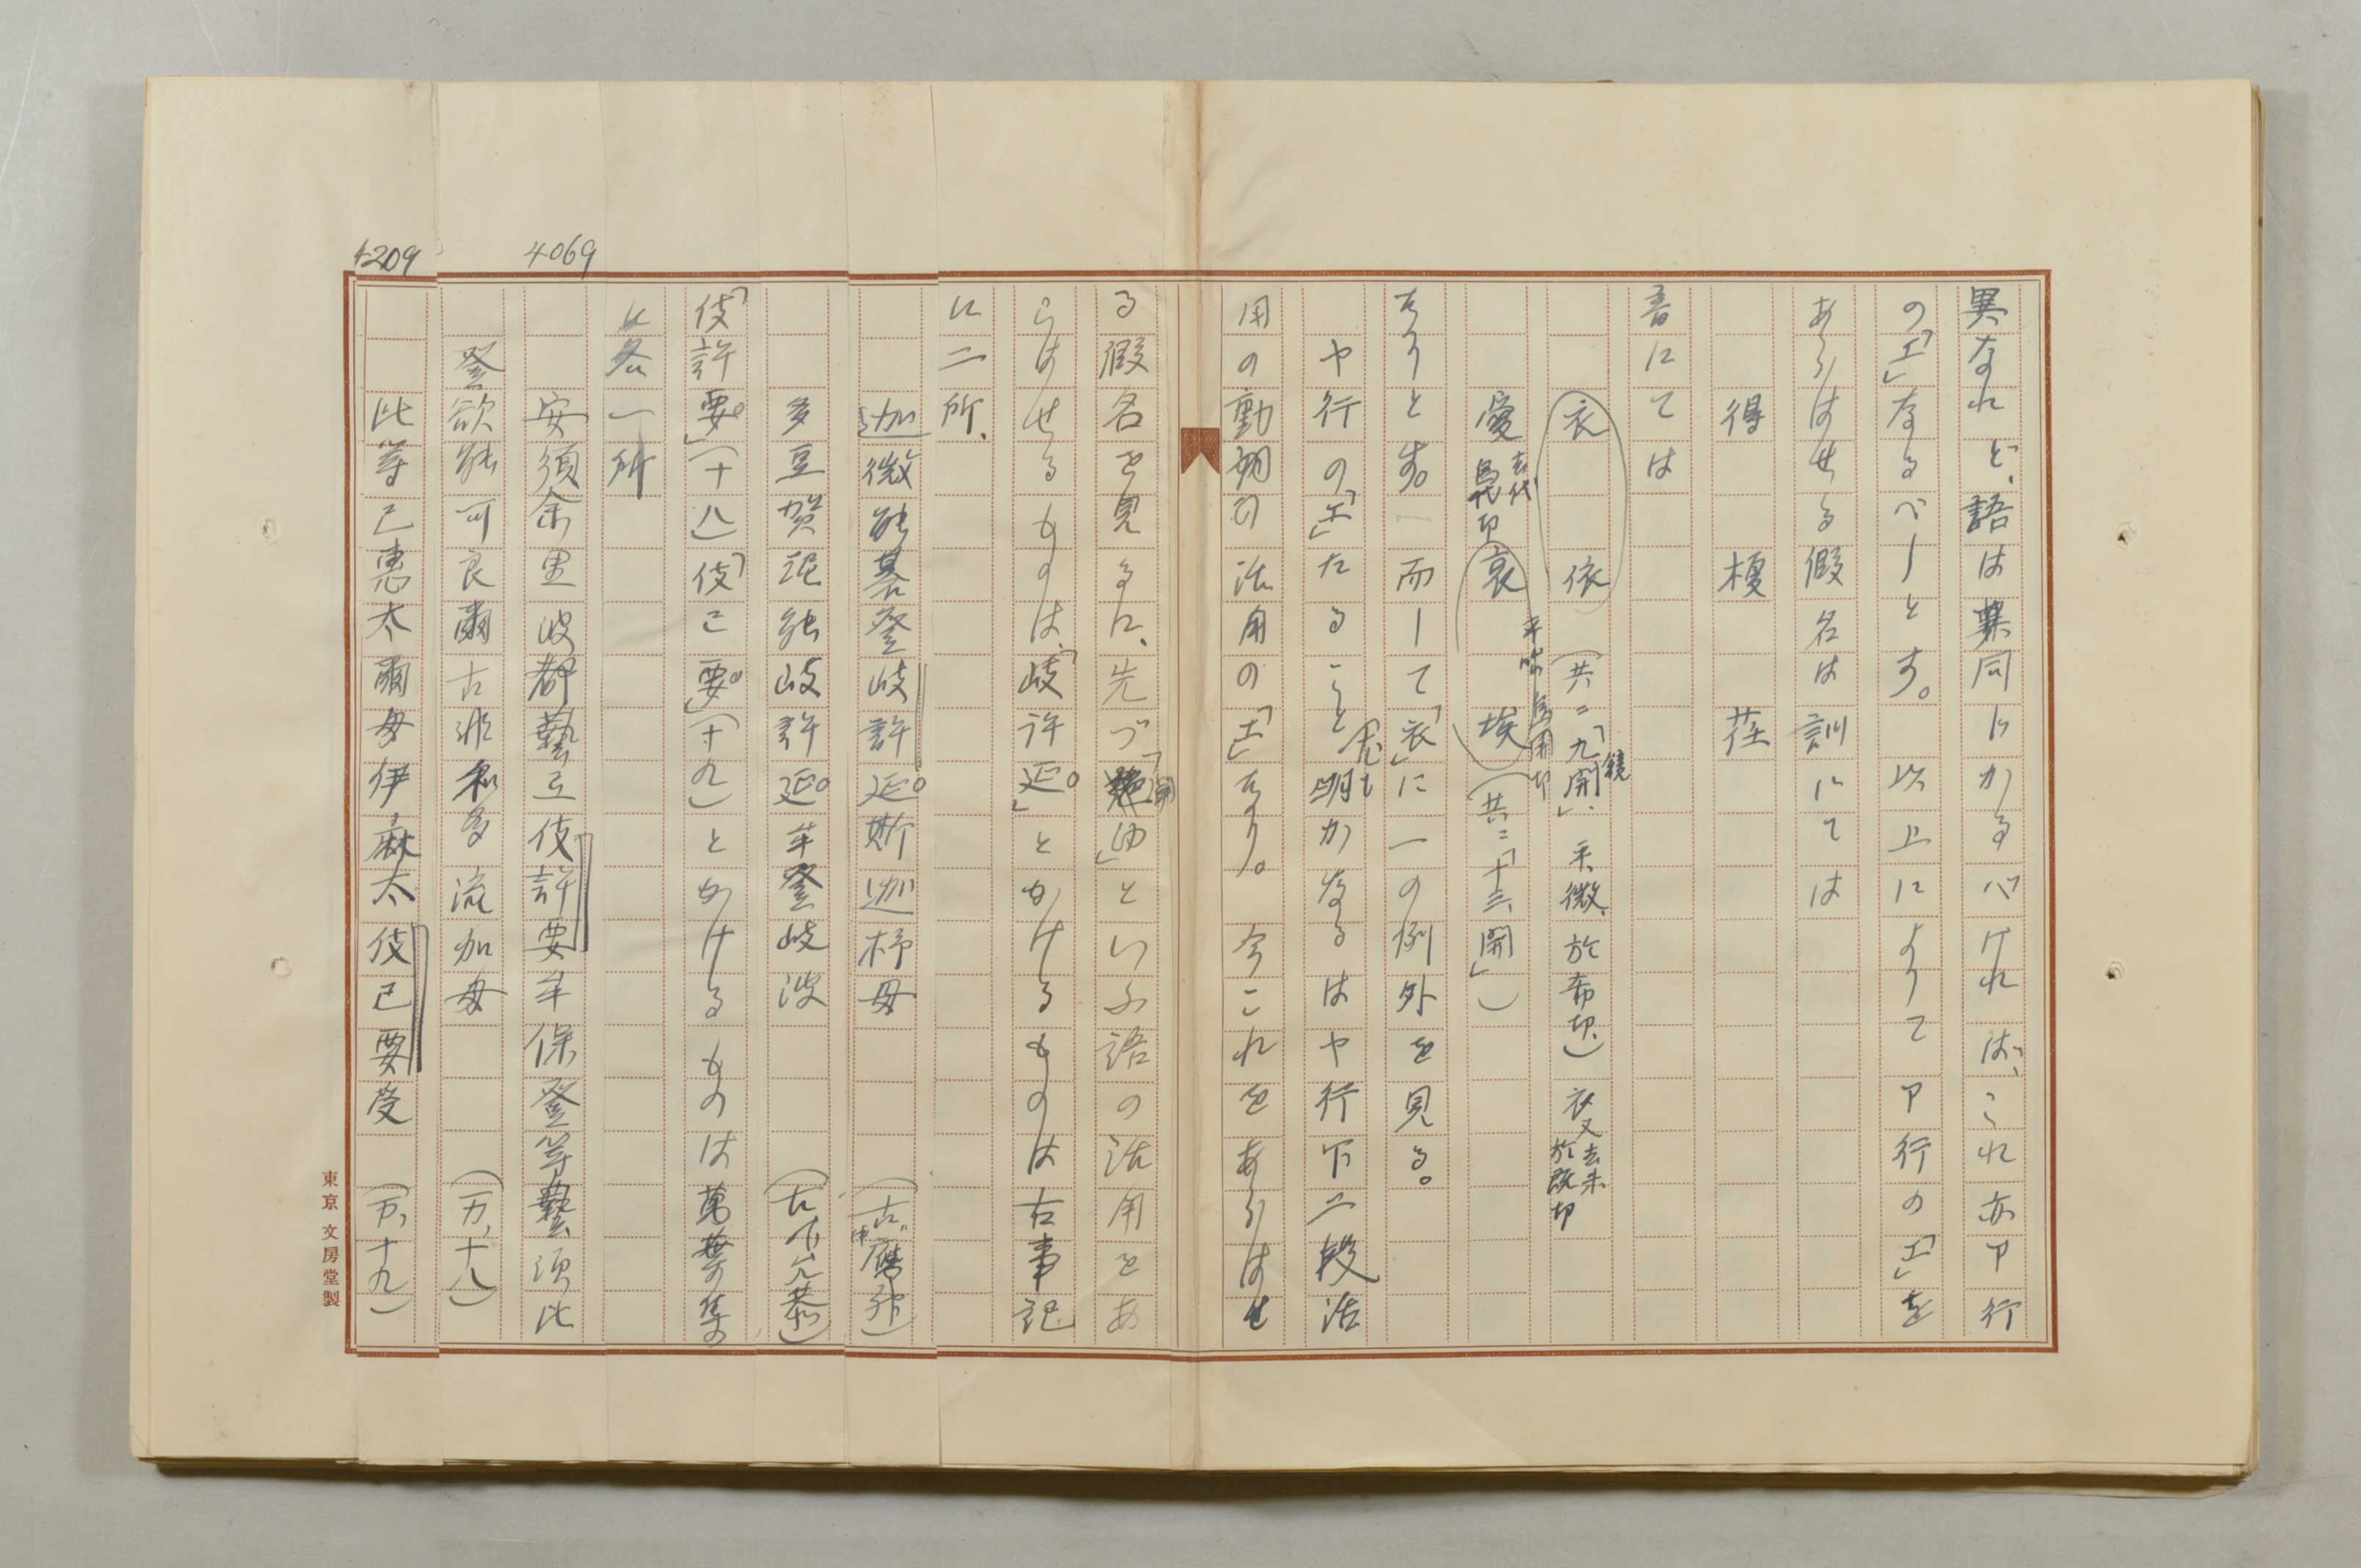 異なれど、語は異同じかるべければ、これ亦ア行
の「エ」なるべしとす。 以上によりてア行の「エ」を
あらはせる假名は訓にては
得 榎 荏
音にては
衣 依 (共ニ「九、開」、平、微、於希切、) 衣又去未於既切
愛 去代烏代切 哀 平咍烏開切 埃 (共ニ「十三、開」)
なりとす。 而して「衣」に一の例外を見る。
ヤ行の「エ」たること尤も明かなるはヤ行下二段活
用の動詞の活用の「エ」なり。 今これをあらはせ
る假名を見るに、先づ「聞ゆ」といふ語の活用をあ
らはせるものは、「岐許延」とかけるものは古事記
に二所、
迦微能碁登岐許延斯迦杼母 (古、中、應神)
多豆賀泥能岐許延牟登岐波 (古、下、允恭)
「伎許要」(十八)「伎己要」(十九)とかけるものは萬葉集
に各一所
4069
安須余里波都藝弖伎許要牟保登等藝須比
登欲能可良爾古非和多流加母 (万、十八)
4209
此等己惠太爾毎伊麻太伎己要受 (万、十九)
東京 文房堂製